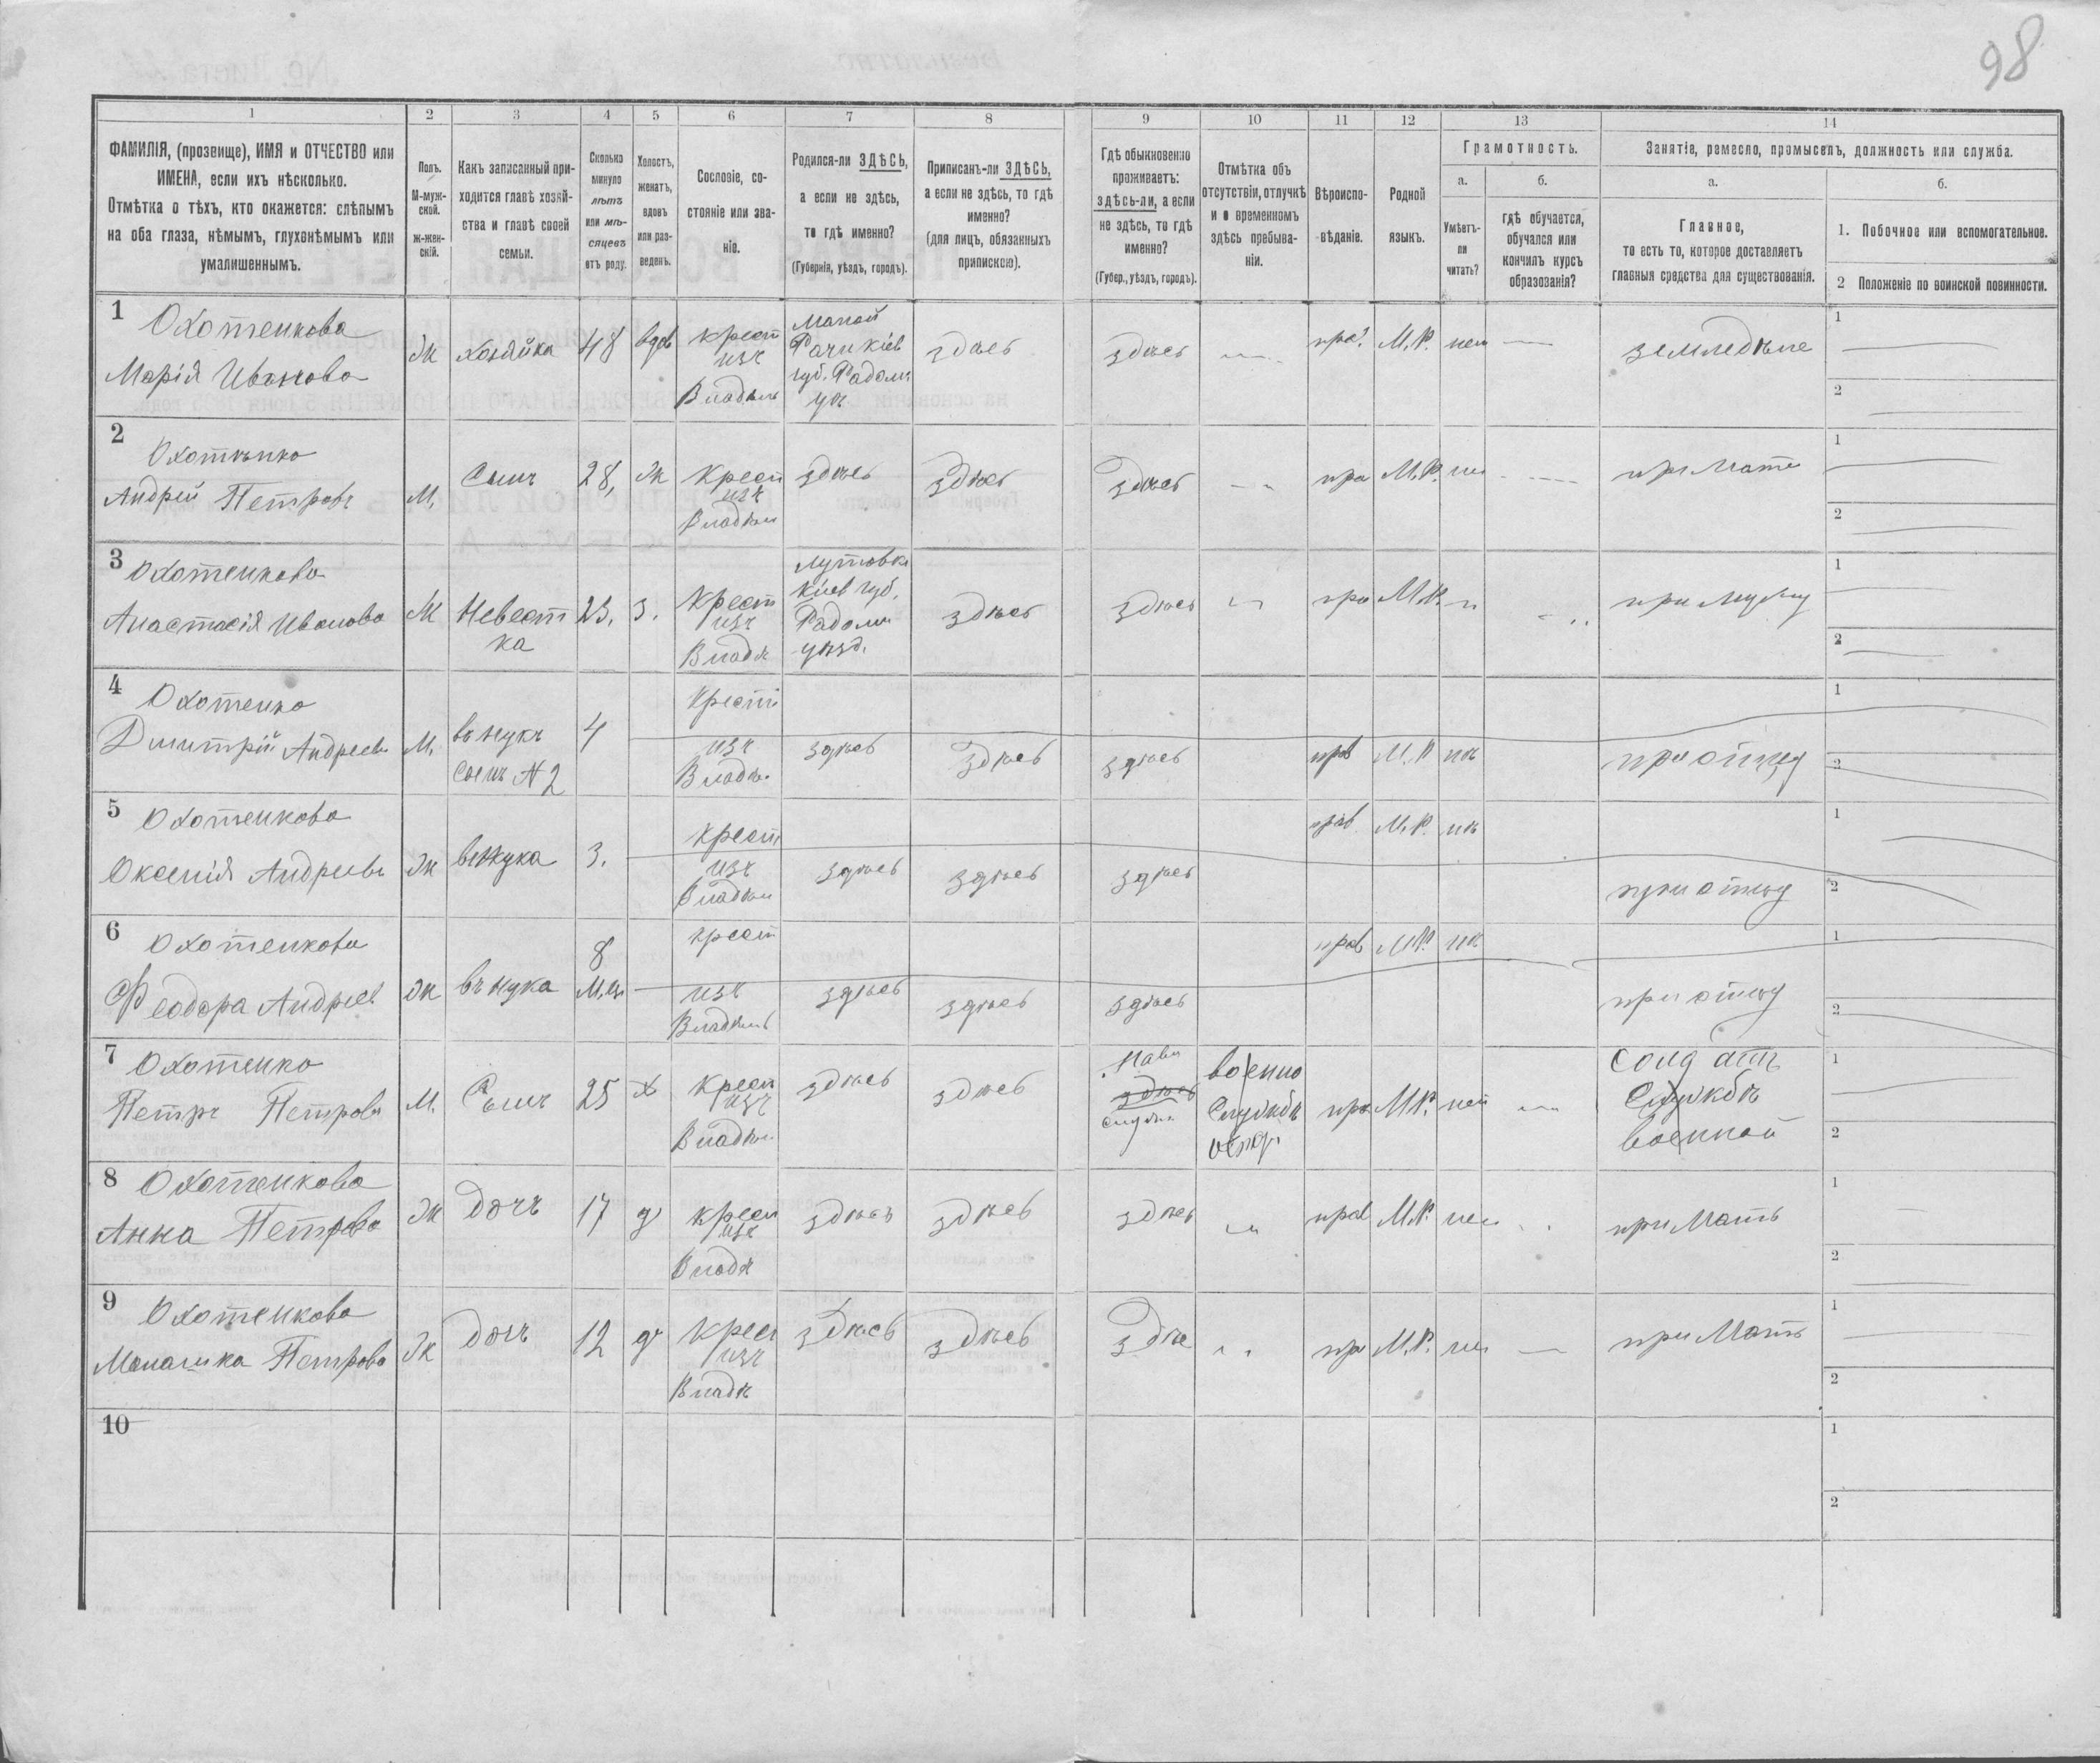 98
1 2 3 4 5 6 7 8 9 10 11 12 13 14
ФАМИЛІЯ, (прозвище), ИМЯ и ОТЧЕСТВО или
ИМЕНА, если ихъ нѣсколько.
Отмѣтка о тѣхъ, кто окажется: слѣпымъ
на оба глаза, нѣмымъ, глухонѣмымъ или
умалишеннымъ.
Полъ.
М-муж-
ской.
ж-жен-
скій.
Какъ записанный при-
ходится главѣ хозяй-
ства и главѣ своей
семьи.
Сколько
минуло
лѣтъ
или мѣ-
сяцевъ
отъ роду.
Холостъ,
женатъ,
вдовъ
или раз-
веденъ.
Сословіе, со-
стояніе или зва-
ніе.
Родился-ли ЗДѢСЬ,
а если не здѣсь,
то гдѣ именно?
(Губернія, уѣздъ, городъ).
Приписанъ-ли ЗДѢСЬ,
а если не здѣсь, то гдѣ
именно?
(для лицъ, обязанныхъ
припискою).
Гдѣ обыкновенно
проживаетъ:
здѣсь-ли, а если
не здѣсь, то гдѣ
именно?
(Губер., уѣздъ, городъ).
Отмѣтка объ
отсутствіи, отлучкѣ
и о временномъ
здѣсь пребыва-
ніи.
Вѣроиспо-
вѣданіе.
Родной
языкъ.
Грамотность.
а.
Умѣетъ-
ли
читать?
б.
гдѣ обучается,
обучался или
кончилъ курсъ
образованія?
Занятіе, ремесло, промыселъ, должность или служба.
а.
Главное,
то есть то, которое доставляетъ
главныя средства для существованія.
б.
1. Побочное или вспомогательное.
2 Положеніе по воинской повинности.
1
Охотенкова
Марія Иванова
Ж
хозяйка
48
вдв
крест
изъ
Владѣль
Малой
Рачи Кіев
губ. Радом
здѣсь
здѣсь
пра
М.Р.
нет
земледѣліе
1
2
2
Охотѣнко
Андрей Петровъ
М.
Сынъ
28,
Ж
Крест
изъ
Владѣл
здѣсь
здѣсь
здѣсь
пра
М.Р.
при Мате
1
2
3
Охотенкова
Анастасія Иванова
Ж
Невест
ка
23.
з.
Крест
изъ
Владѣ
Лутовка
Кіев губ.
Радом
уѣзд.
здѣсь
здѣсь
пра
М.Р.
при мужу
1
2
4
Охотенко
Дмитрій Андреевъ
М.
внукъ
сынъ N 2
4
Крест
изъ
Владѣ
здѣсь
здѣсь
здѣсь
прав
М.Р.
при отцу
1
2
5
Охотенкова
Оксенія Андреевъ
Ж
внука
3.
Крест
изъ
Владѣл
здѣсь
здѣсь
здѣсь
прав
М.Р.
при отцу
1
2
6
Охотенкова
Феодора Андреев
Ж
внука
8
М.ц.
крест
изъ
Владѣль
здѣсь
здѣсь
здѣсь
прав
М.Р.
при отцу
1
2
7
Охотенко
Петръ Петровъ
М.
Сынъ
25
х
Крест
изъ
Владѣл
здѣсь
здѣсь
здѣсь
военно
Службѣ
пра
М.Р.
нет
Солдатъ
Службѣ
военной
1
2
8
Охотенкова
Анна Петрова
Ж
дочъ
17
д
крест
изъ
Владѣ
здѣсь
здѣсь
здѣсь
прав
М.Р.
нет
при Мать
1
2
9
Охотенкова
Меланка Петрова
Ж
дочъ
12
д
Крест
изъ
Владѣ
здѣсь
здѣсь
здѣ
пр
М.Р.
при Мать
1
2
10
1
2